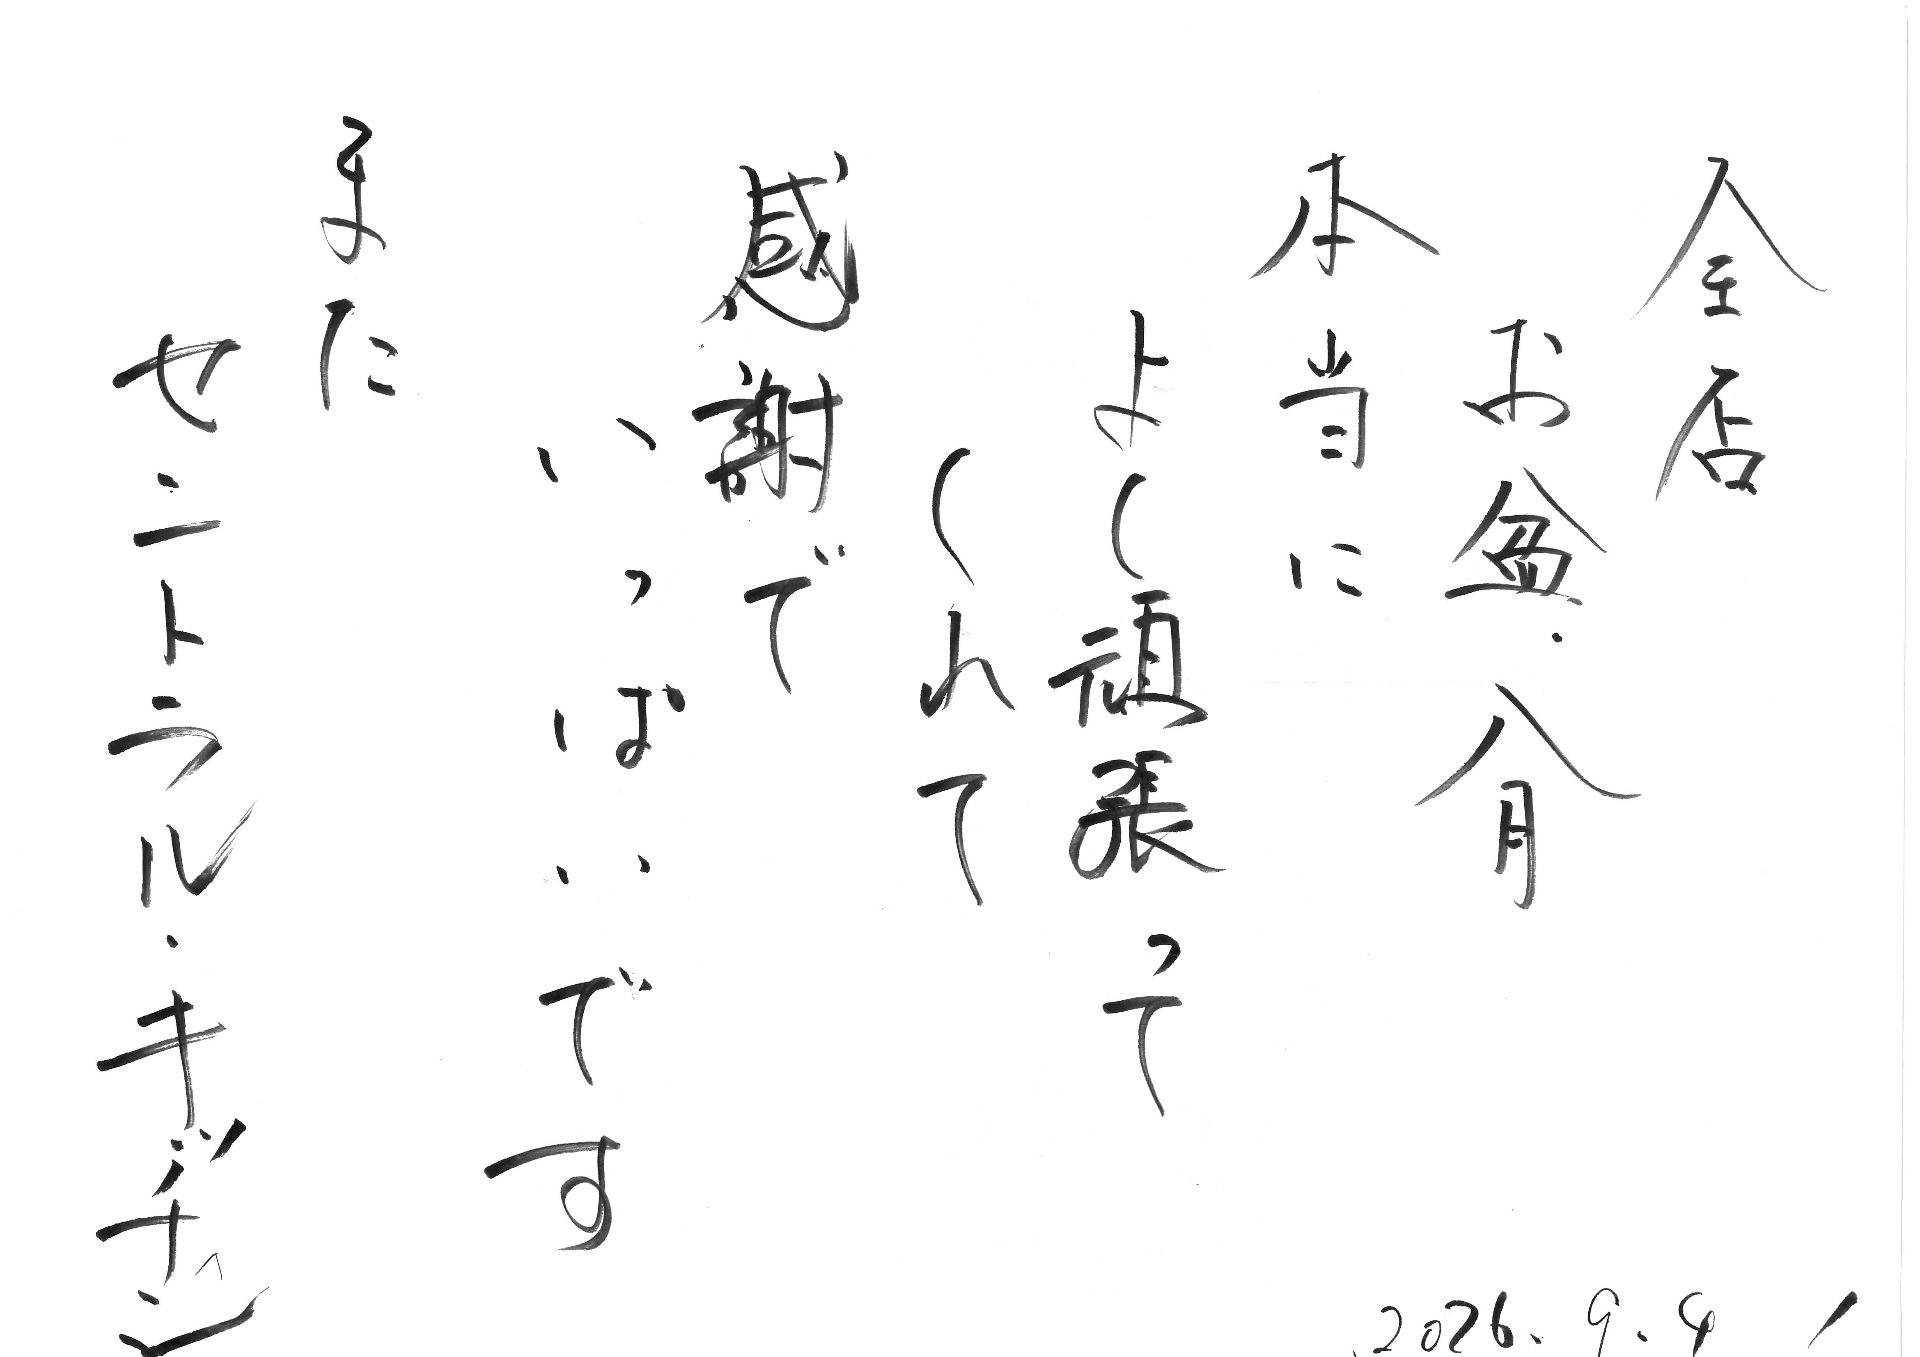 全店
お盆・八月
本当に
よく頑張って
くれて
感謝で
いっぱいです
また
セントラル・キッチン
2026.9.4